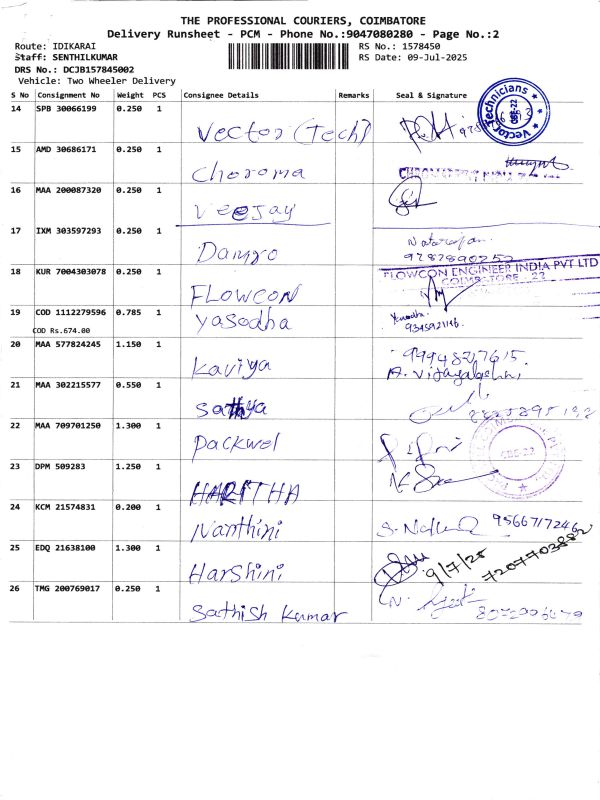 THE PROFESSIONAL COURIERS, COIMBATORE
Delivery Runsheet - PCM - Phone No.:9047080280 - Page No.:2
Route: IDIKARAI
Staff: SENTHILKUMAR
DRS No.: DCJB157845002
Vehicle: Two Wheeler Delivery
RS No.: 1578450
RS Date: 09-Jul-2025
S No Consignment No Weight PCS Consignee Details Remarks Seal & Signature
14 SPB 30066199 0.250 1 Vector (Tech) Vector Technicians CBE-22
15 AMD 30686171 0.250 1 Choroma
16 MAA 200087320 0.250 1 Veejay
17 IXM 303597293 0.250 1 Damro Natarajan
9787890252
18 KUR 7004303078 0.250 1 FLOWCON FLOWCON ENGINEER INDIA PVT LTD
COIMBATORE - 22
19 COD 1112279596 0.785 1 yasodha Yasodha
COD Rs.674.00
20 MAA 577824245 1.150 1 Kaviya
A. Vijayalakshmi
21 MAA 302215577 0.550 1 Sathya
22 MAA 709701250 1.300 1 Packwel CBE-22
23 DPM 509283 1.250 1 HARITHA
24 KCM 21574831 0.200 1 Nanthini 9566717246
25 EDQ 21638100 1.300 1 Harshini 9/7/25 7207703882
26 TMG 200769017 0.250 1 Sathish kumar